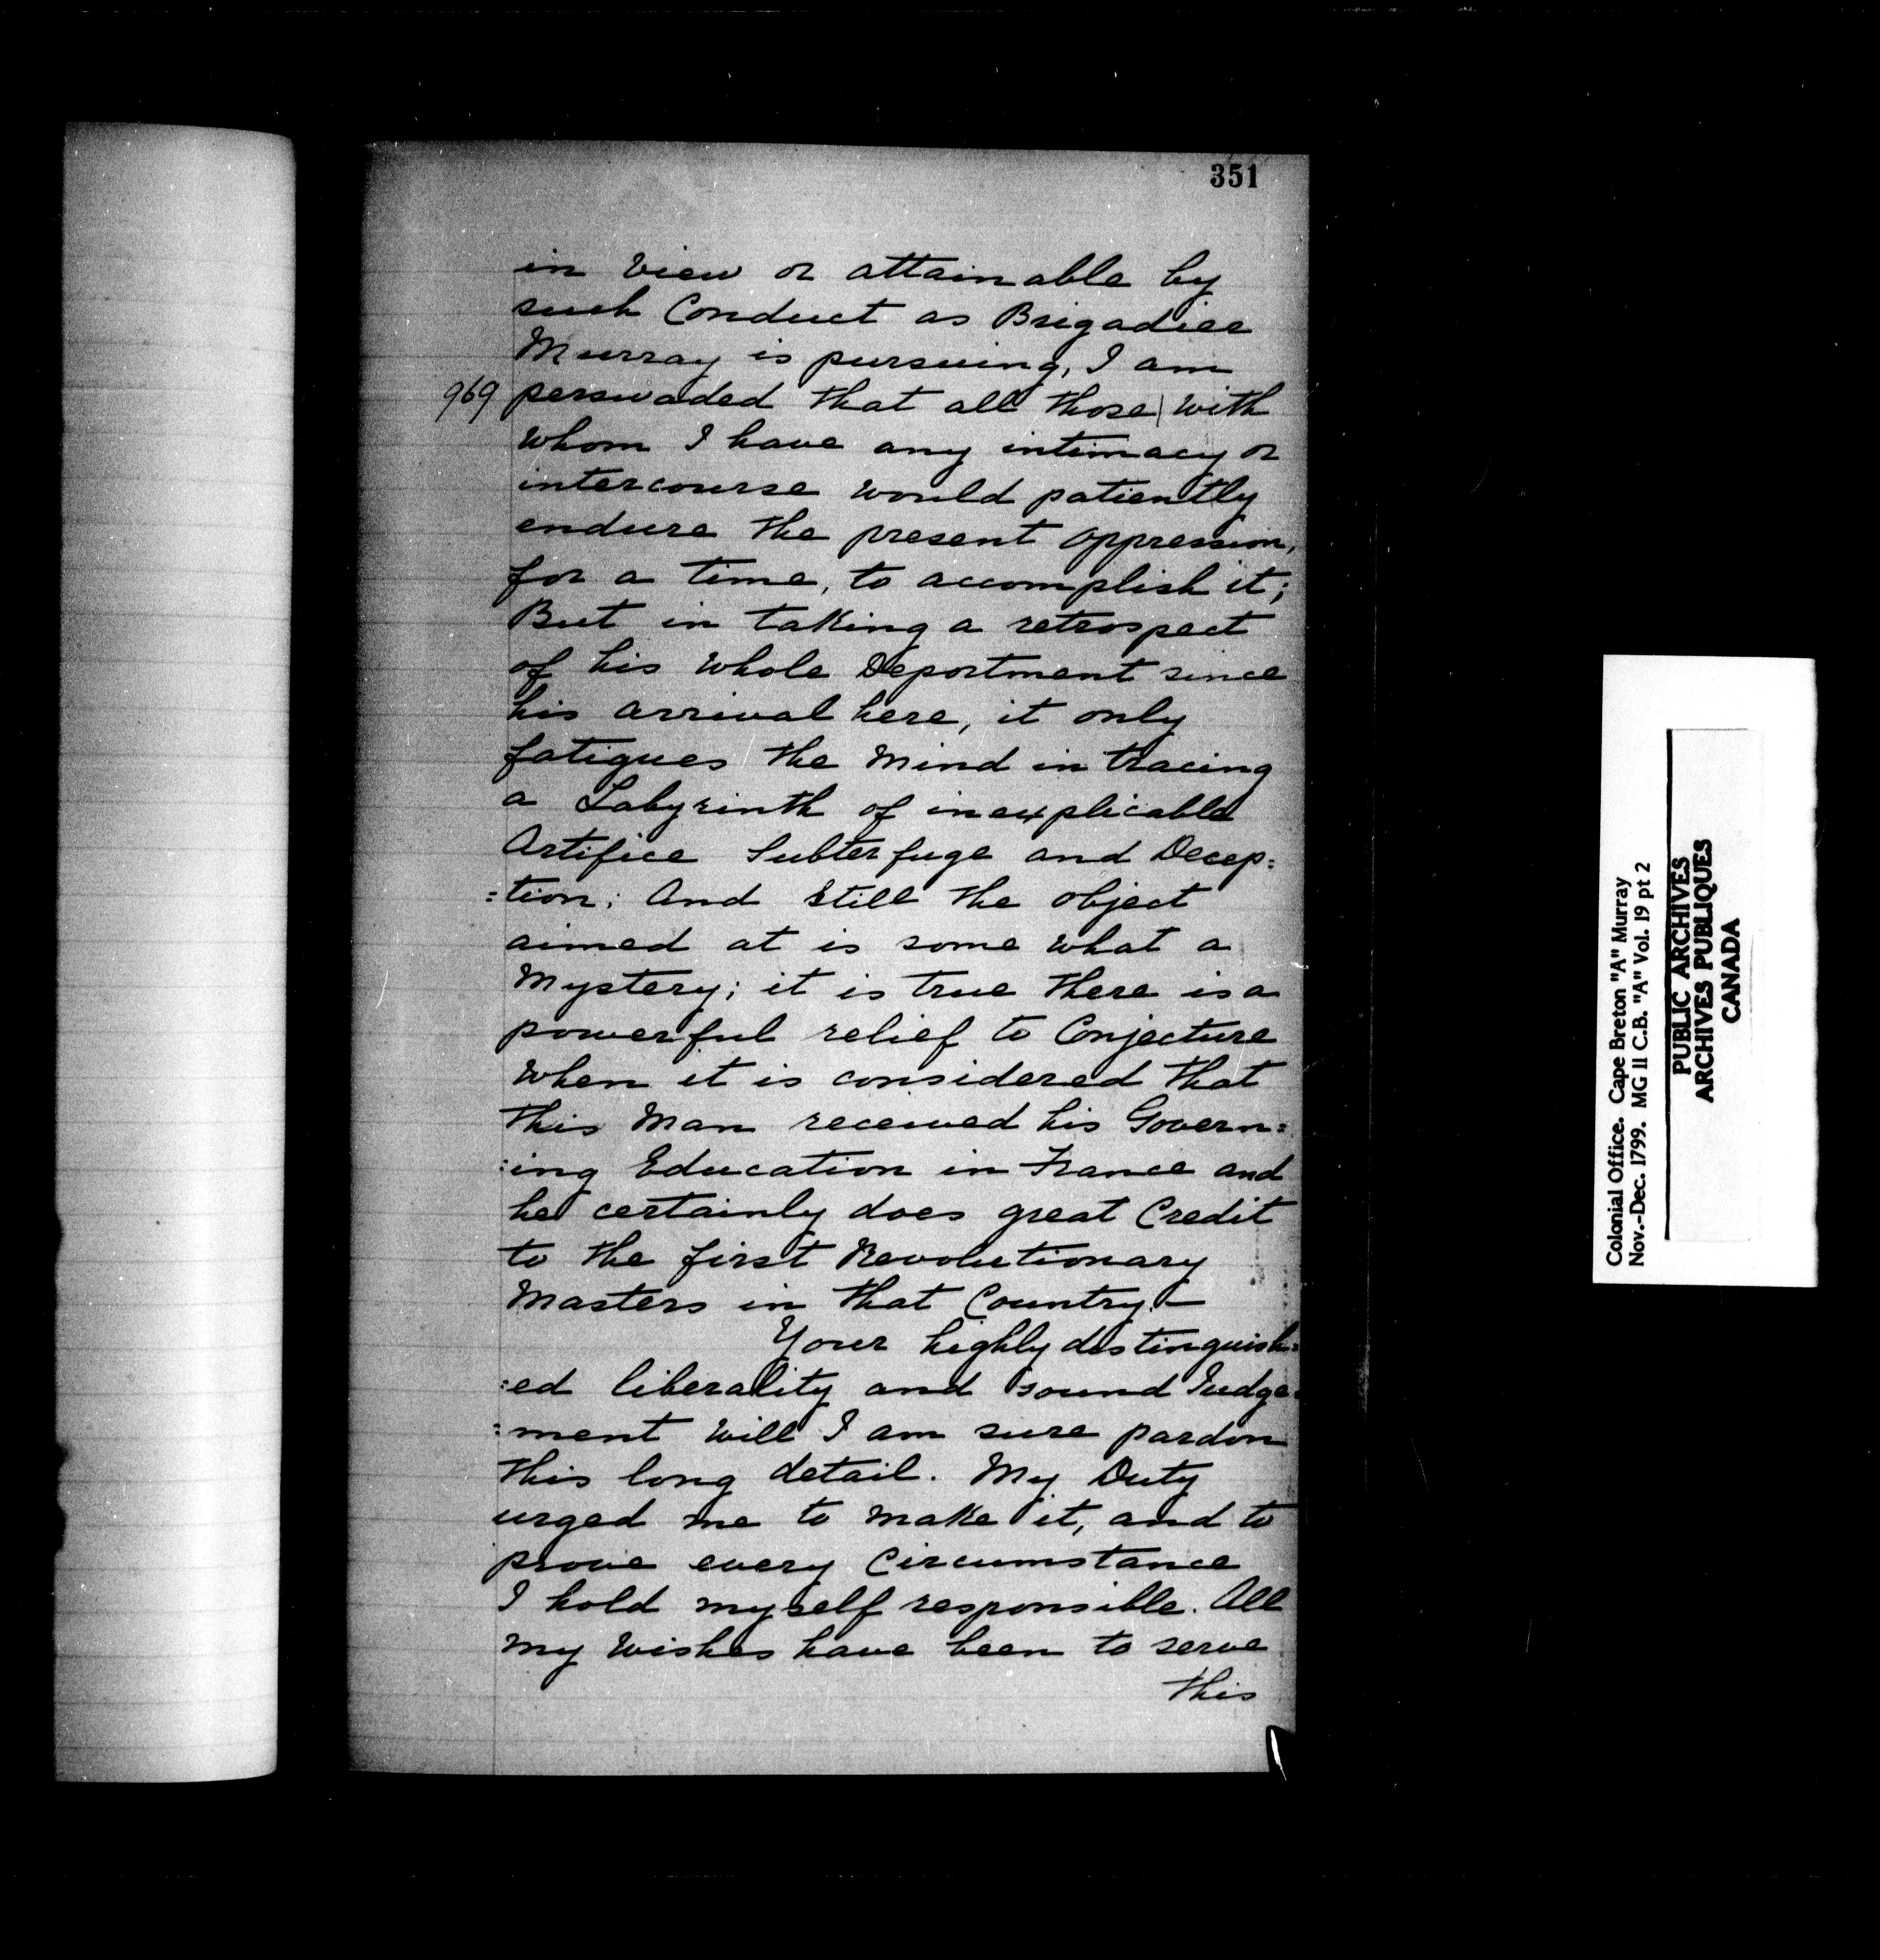 351
in View or attainable by
such Conduct as Brigadier
Murray is pursuing, I am
969 perswaded that all those | with
whom I have any intimacy or
intercourse would patiently
endure the present oppression,
for a time, to accomplish it;
But in taking a retrospect
of his whole Deportment since
his arrival here, it only
fatigues the Mind in tracing
a Labyrinth of inexplicable
Artifice Subterfuge and Decep:
:tion; And still the object
aimed at is some what a
Mystery; it is true there is a
powerful relief to Conjecture
when it is considered that
this Man received his Govern:
:ing Education in France and
he certainly does great Credit
to the first Revolutionary
Masters in that Country.—
Your highly distinguish:
:ed liberality and sound Judge:
:ment will I am sure pardon
this long detail. My Duty
urged me to make it, and to
prove every Circumstance
I hold myself responsible. All
my Wishes have been to serve
this
Colonial Office. Cape Breton "A" Murray
Nov.-Dec. 1799. MG II C.B. "A" Vol. 19 pt 2
PUBLIC ARCHIVES
ARCHIVES PUBLIQUES
CANADA